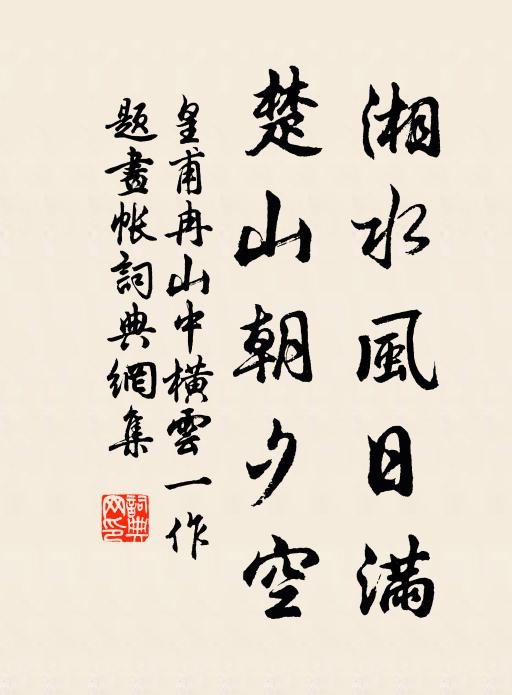 湘水風日滿
楚山朝夕空
皇甫冉山中橫雲一作
題畫帳詞典網集
詞典網印